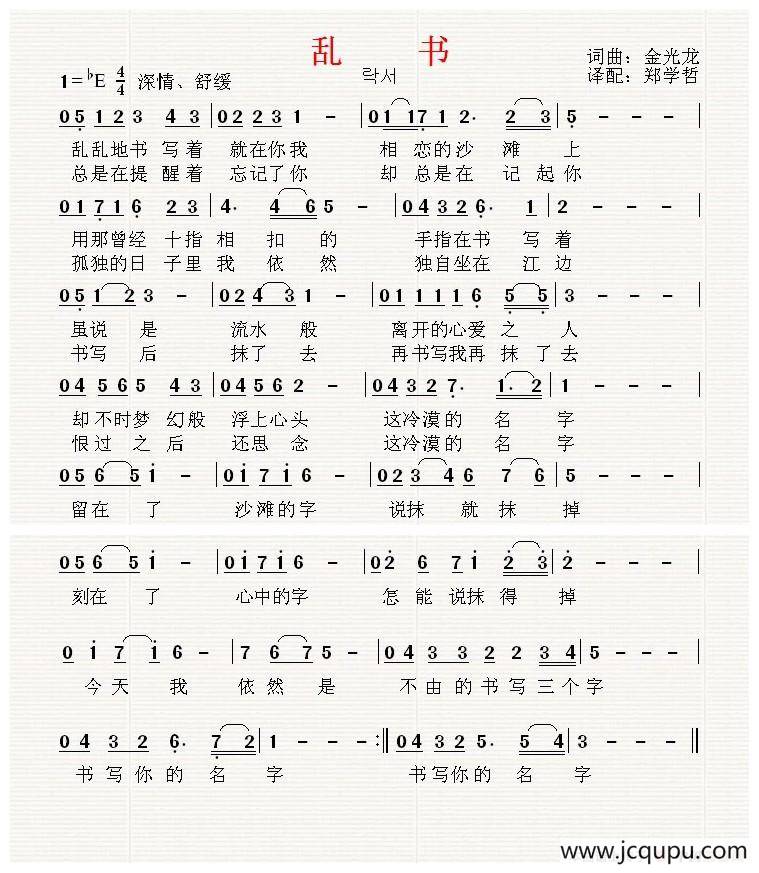 乱 书
락서
词曲：金光龙
译配：郑学哲
1=♭E 4/4 深情、舒缓
0 5 1 2 3 4 3 | 0 2 2 3 1 - | 0 1 1 7 1 2. 2 3 | 5 - - - |
乱乱地书 写着 就在你我 相 恋的沙 滩 上
总是在提 醒着 忘记了你 却 总是在 记 起你
0 1 7 1 6 2 3 | 4. 4 6 5 - | 0 4 3 2 6. 1 | 2 - - - |
用那曾经 十指 相 扣 的 手指在书 写 着
孤独的日 子里 我 依 然 独自坐在 江 边
0 5 1 2 3 - | 0 2 4 3 1 - | 0 1 1 1 1 6 5 5 | 3 - - - |
虽说 是 流水 般 离开的心爱 之 人
书写 后 抹了 去 再书写我再 抹 了去
0 4 5 6 5 4 3 | 0 4 5 6 2 - | 0 4 3 2 7. 1. 2 | 1 - - - |
却不时梦 幻般 浮上心头 这冷漠的 名 字
恨过之后 还思 念 这冷漠的 名 字
0 5 6 5 i - | 0 i 7 i 6 - | 0 2 3 4 6 7 6 | 5 - - - |
留在 了 沙滩的字 说抹 就 抹 掉
0 5 6 5 i - | 0 i 7 i 6 - | 0 2 6 7 i 2 3 | 2 - - - |
刻在 了 心中的字 怎 能 说抹 得 掉
0 i 7 i 6 - | 7 6 7 5 - | 0 4 3 3 2 2 3 4 | 5 - - - |
今 天 我 依 然 是 不 由 的 书 写 三 个 字
0 4 3 2 6. 7 2 | 1 - - - :‖ 0 4 3 2 5. 5 4 | 3 - - - ‖
书 写 你 的 名 字 书 写 你 的 名 字
www.jcqupu.com